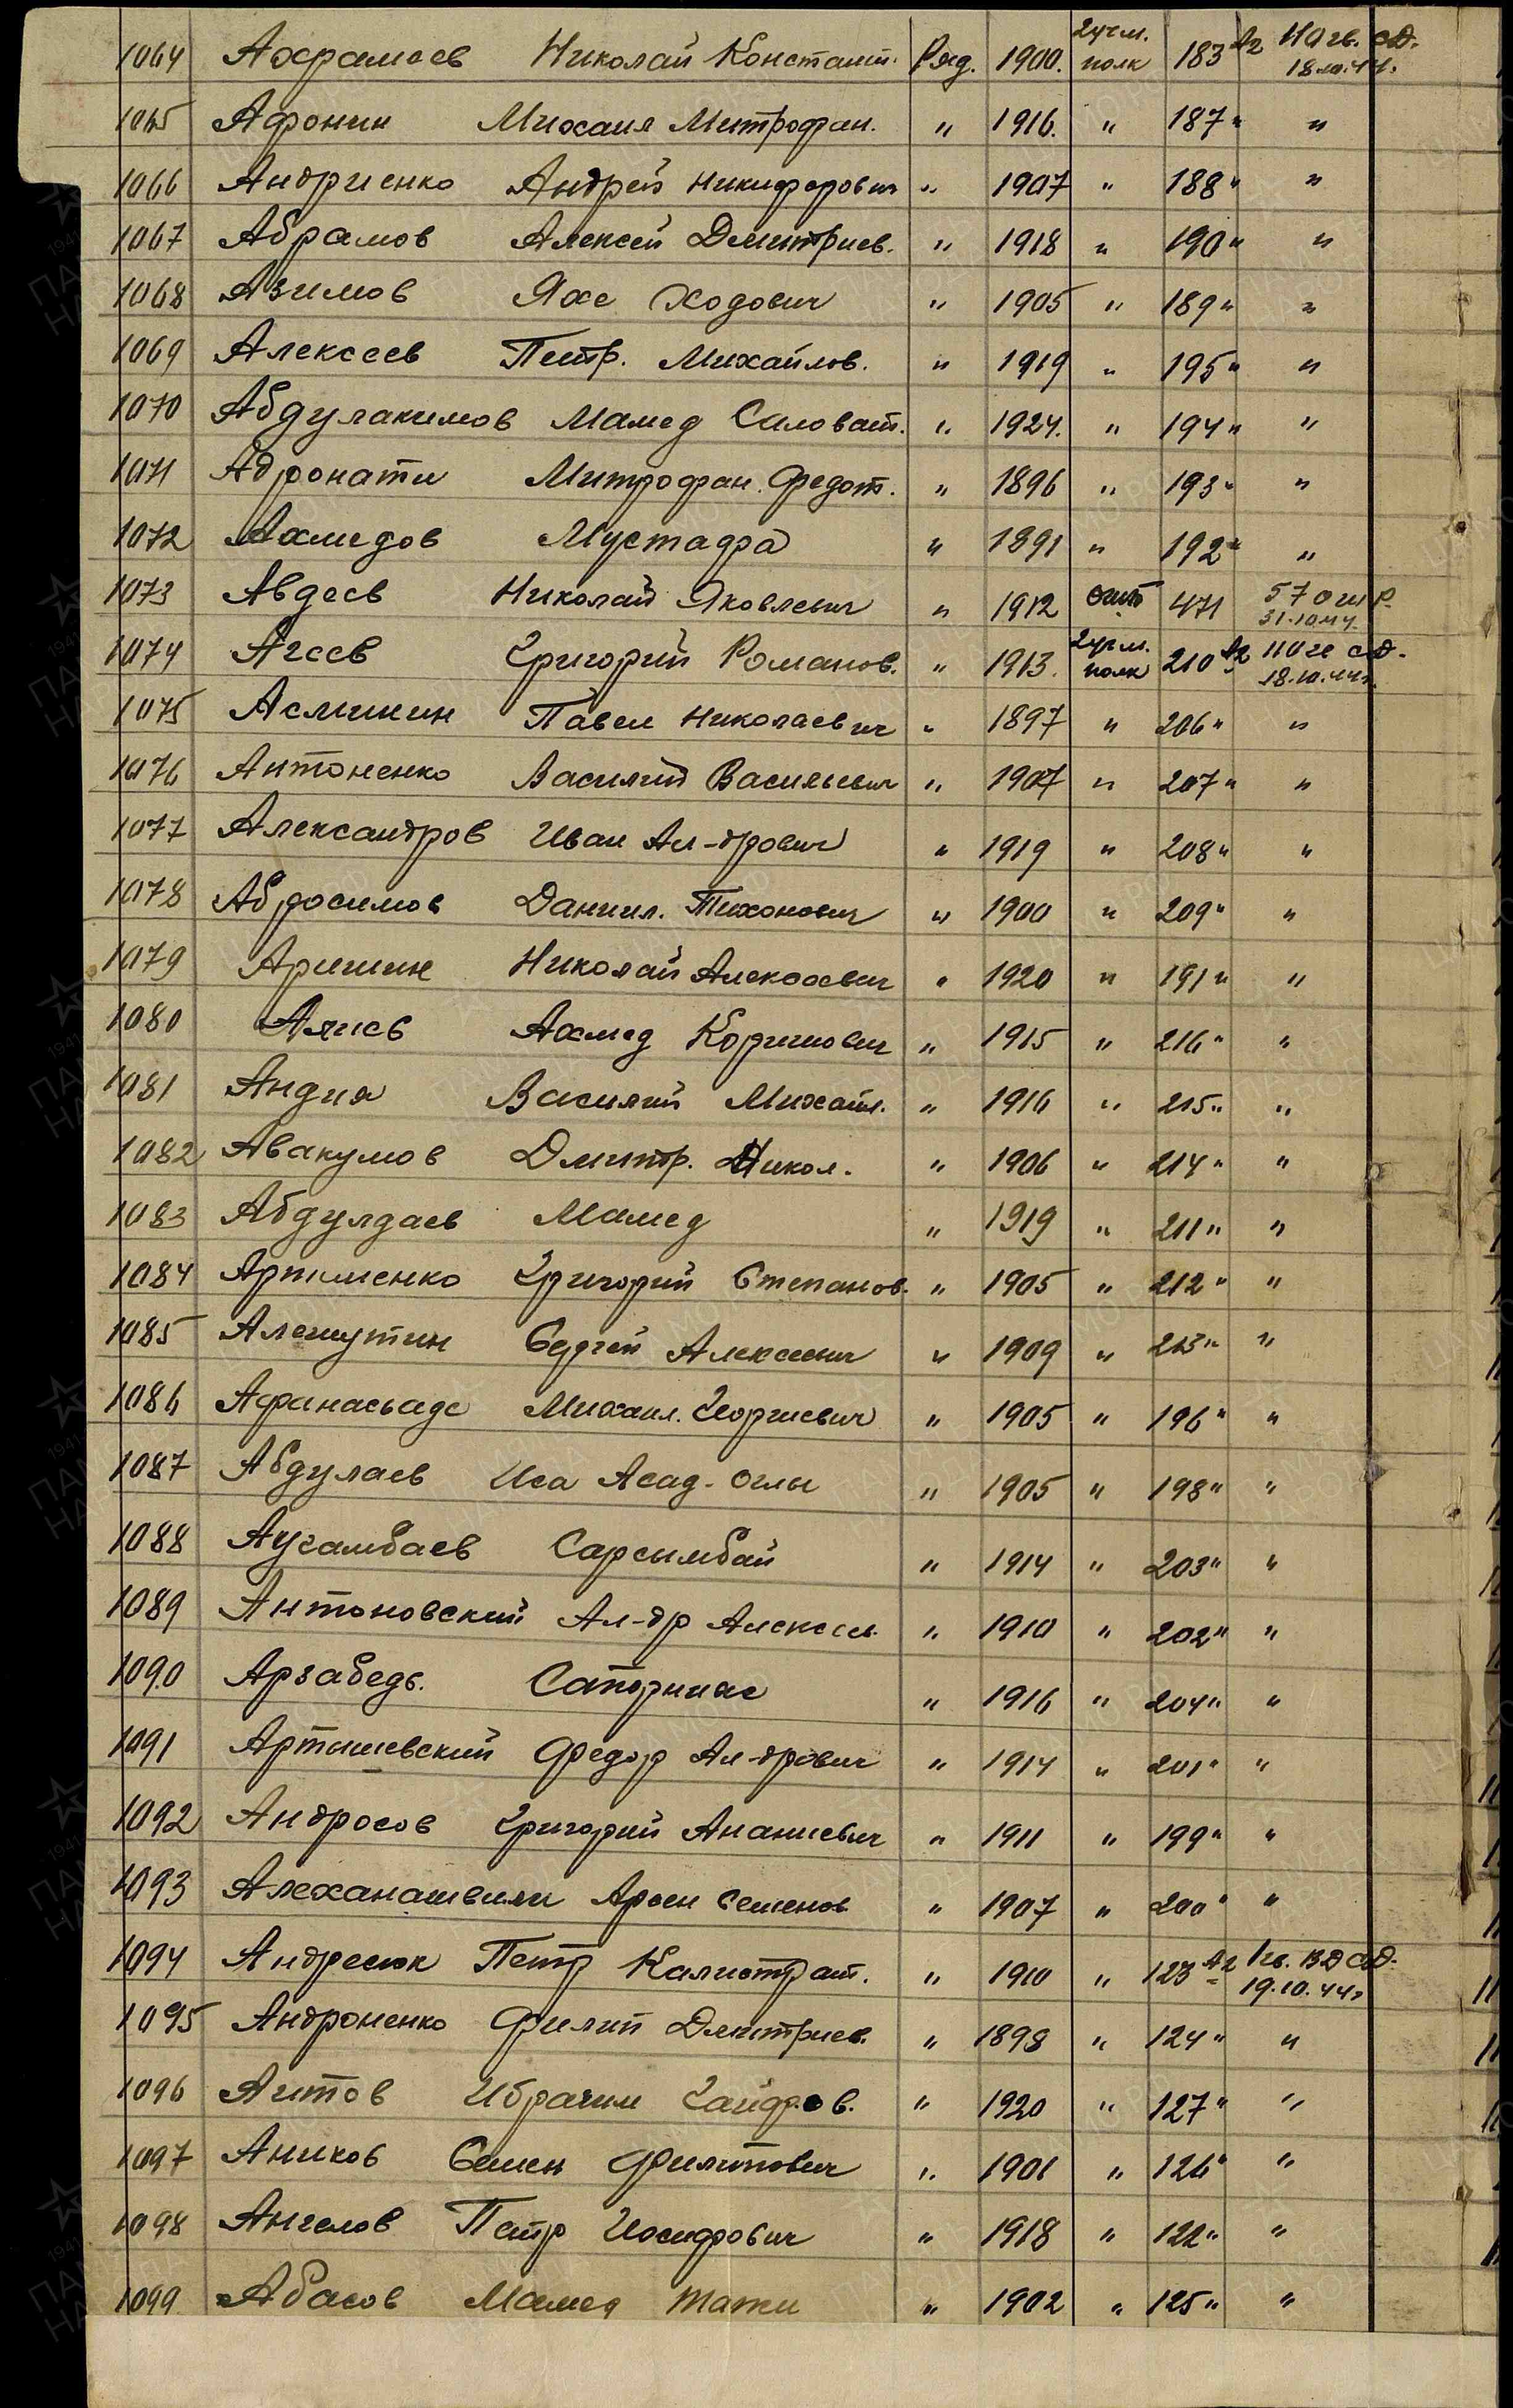 1064 Ахрамеев Николай Констант. Ряд. 1900. 2 уч. м. полк 183 Аг 110 гв. сд. 18.10.44.
1065 Афонин Михаил Митрофан. " 1916. " 187 " "
1066 Андриенко Андрей Никифорович " 1907 " 188 " "
1067 Абрамов Алексей Дмитриев. " 1918 " 190 " "
1068 Азимов Яхе Ходович " 1905 " 189 " "
1069 Алексеев Петр. Михайлов. " 1919 " 195 " "
1070 Абдулакимов Мамед Саловат. " 1924. " 194 " "
1071 Адронати Митрофан. Федот. " 1896 " 193 " "
1072 Ахмедов Мустафа " 1891 " 192 " "
1073 Авдеев Николай Яковлевич " 1912 471 57 ошр 31.10.44.
1074 Агеев Григорий Романов. " 1913. 2 уч. м. полк 210 Аг 110 гв сд. 18.10.44г.
1075 Асминин Павел Николаевич " 1897 " 206 " "
1076 Антоненко Василий Васильевич " 1907 " 207 " "
1077 Александров Иван Ал-дрович " 1919 " 208 " "
1078 Абросимов Даниил. Тихонович " 1900 " 209 " "
1079 Аришин Николай Алексеевич " 1920 " 191 " "
1080 Алиев Ахмед Каримович " 1915 " 216 " "
1081 Андия Василий Михайл. " 1916 " 215 " "
1082 Авакумов Дмитр. Никол. " 1906 " 214 " "
1083 Абдулдаев Мамед " 1919 " 211 " "
1084 Артименко Григорий Степанов. " 1905 " 212 " "
1085 Алешутин Сергей Алексеевич " 1909 " 213 " "
1086 Афанасьаде Михаил. Георгиевич " 1905 " 196 " "
1087 Абдулаев Иса Асад-Оглы " 1905 " 198 " "
1088 Аугамбаев Сарсымбай " 1914 " 203 " "
1089 Антоновский Ал-др Алексеев. " 1910 " 202 " "
1090 Арзабедь. " 1916 " 204 " "
1091 Артышевский Федор Ал-дрович " 1914 " 201 " "
1092 Андросов Григорий Ананиевич " 1911 " 199 " "
1093 Алеханашвили Арсен Семенов " 1907 " 200 " "
1094 Андресюк Петр Калистрат. " 1910 " 123 Аг 1 гв. ВД сд. 19.10.44г.
1095 Андроненко Филип Дмитриев. " 1898 " 124 " "
1096 Аитов Ибрагим Гайфров. " 1920 " 127 " "
1097 Аников Семен Филипович " 1901 " 126 " "
1098 Ангелов Петр Иосифович " 1918 " 122 " "
1099 Абасов Мамед Тати " 1902 " 125 " "